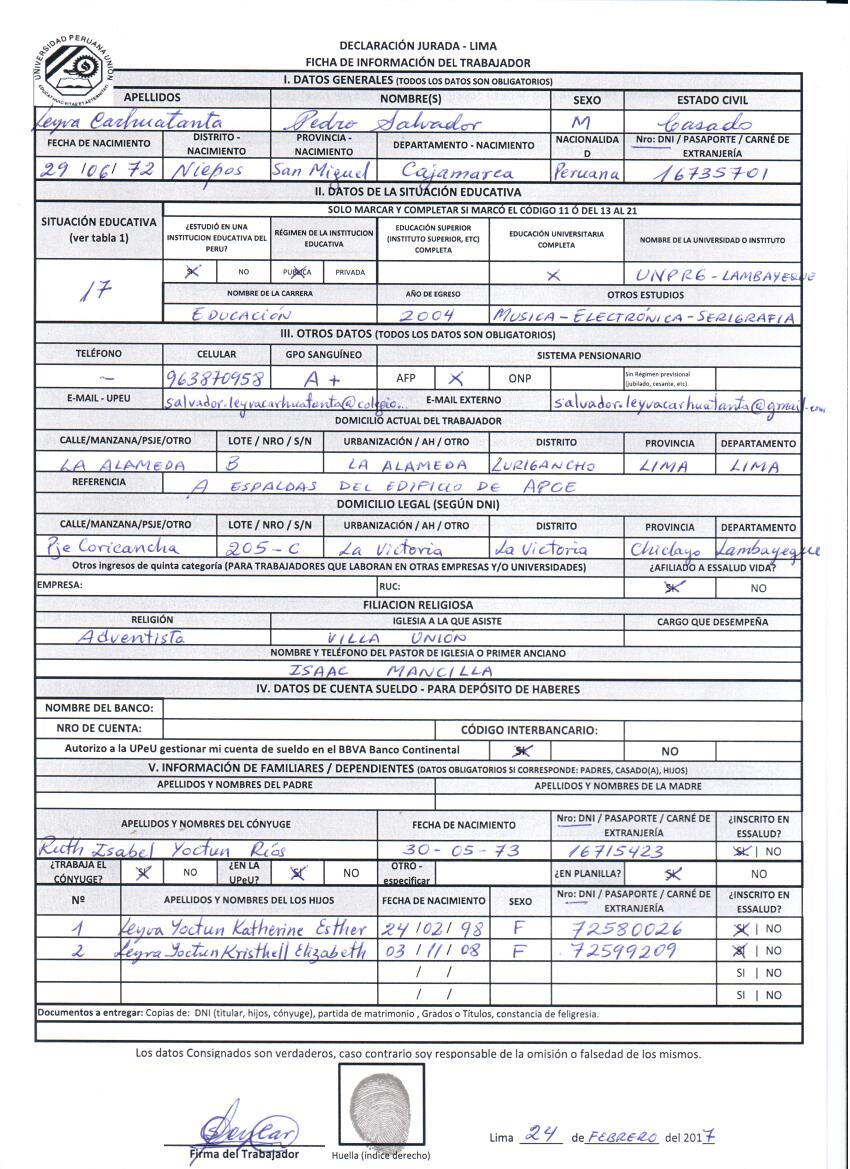 UNIVERSIDAD PERUANA UNION
DECLARACIÓN JURADA - LIMA
FICHA DE INFORMACIÓN DEL TRABAJADOR
I. DATOS GENERALES (TODOS LOS DATOS SON OBLIGATORIOS)
APELLIDOS NOMBRE(S) SEXO ESTADO CIVIL
Leyva Carhuatanta Pedro Salvador M Casado
FECHA DE NACIMIENTO DISTRITO - NACIMIENTO PROVINCIA - NACIMIENTO DEPARTAMENTO - NACIMIENTO NACIONALIDAD Nro: DNI / PASAPORTE / CARNÉ DE EXTRANJERÍA
29 /06/ 72 Niepos San Miguel Cajamarca Peruana 16735701
II. DATOS DE LA SITUACIÓN EDUCATIVA
SOLO MARCAR Y COMPLETAR SI MARCÓ EL CÓDIGO 11 Ó DEL 13 AL 21
SITUACIÓN EDUCATIVA (ver tabla 1) ¿ESTUDIÓ EN UNA INSTITUCION EDUCATIVA DEL PERU? RÉGIMEN DE LA INSTITUCION EDUCATIVA EDUCACIÓN SUPERIOR (INSTITUTO SUPERIOR, ETC) COMPLETA EDUCACIÓN UNIVERSITARIA COMPLETA NOMBRE DE LA UNIVERSIDAD O INSTITUTO
17 SI NO PUBLICA PRIVADA X UNPRG - LAMBAYEQUE
NOMBRE DE LA CARRERA AÑO DE EGRESO OTROS ESTUDIOS
EDUCACIÓN 2004 MUSICA - ELECTRÓNICA - SERIGRAFIA
III. OTROS DATOS (TODOS LOS DATOS SON OBLIGATORIOS)
TELÉFONO CELULAR GPO SANGUÍNEO SISTEMA PENSIONARIO
- 963870958 A + AFP X ONP Sin Régimen previsional (jubilado, cesante, etc).
E-MAIL - UPEU salvador.leyvacarhuatanta@colegio... E-MAIL EXTERNO salvador.leyvacarhuatanta@gmail.com
DOMICILIO ACTUAL DEL TRABAJADOR
CALLE/MANZANA/PSJE/OTRO LOTE / NRO / S/N URBANIZACIÓN / AH / OTRO DISTRITO PROVINCIA DEPARTAMENTO
LA ALAMEDA B LA ALAMEDA LURIGANCHO LIMA LIMA
REFERENCIA A ESPALDAS DEL EDIFICIO DE APCE
DOMICILIO LEGAL (SEGÚN DNI)
CALLE/MANZANA/PSJE/OTRO LOTE / NRO / S/N URBANIZACIÓN / AH / OTRO DISTRITO PROVINCIA DEPARTAMENTO
Pje Coricancha 205 - C La Victoria La Victoria Chiclayo Lambayeque
Otros ingresos de quinta categoría (PARA TRABAJADORES QUE LABORAN EN OTRAS EMPRESAS Y/O UNIVERSIDADES) ¿AFILIADO A ESSALUD VIDA?
EMPRESA: RUC: SI NO
FILIACION RELIGIOSA
RELIGIÓN IGLESIA A LA QUE ASISTE CARGO QUE DESEMPEÑA
Adventista VILLA UNIÓN
NOMBRE Y TELÉFONO DEL PASTOR DE IGLESIA O PRIMER ANCIANO
ISAAC MANCILLA
IV. DATOS DE CUENTA SUELDO - PARA DEPÓSITO DE HABERES
NOMBRE DEL BANCO:
NRO DE CUENTA: CÓDIGO INTERBANCARIO:
Autorizo a la UPeU gestionar mi cuenta de sueldo en el BBVA Banco Continental SI NO
V. INFORMACIÓN DE FAMILIARES / DEPENDIENTES (DATOS OBLIGATORIOS SI CORRESPONDE: PADRES, CASADO(A), HIJOS)
APELLIDOS Y NOMBRES DEL PADRE APELLIDOS Y NOMBRES DE LA MADRE
APELLIDOS Y NOMBRES DEL CÓNYUGE FECHA DE NACIMIENTO Nro: DNI / PASAPORTE / CARNÉ DE EXTRANJERÍA ¿INSCRITO EN ESSALUD?
Ruth Isabel Yoctun Ríos 30 - 05 - 73 16715423 SI | NO
¿TRABAJA EL CÓNYUGE? SI NO ¿EN LA UPeU? SI NO OTRO - especificar ¿EN PLANILLA? SI NO
Nº APELLIDOS Y NOMBRES DE LOS HIJOS FECHA DE NACIMIENTO SEXO Nro: DNI / PASAPORTE / CARNÉ DE EXTRANJERÍA ¿INSCRITO EN ESSALUD?
1 Leyva Yoctun Katherine Esther 24 / 02 / 98 F 72580026 SI | NO
2 Leyva Yoctun Kristhell Elizabeth 03 / 11 / 08 F 72599209 SI | NO
/ / SI | NO
/ / SI | NO
Documentos a entregar: Copias de: DNI (titular, hijos, cónyuge), partida de matrimonio , Grados o Títulos, constancia de feligresia.
Los datos Consignados son verdaderos, caso contrario soy responsable de la omisión o falsedad de los mismos.
Lima 24 de FEBRERO del 2017
Firma del Trabajador Huella (índice derecho)